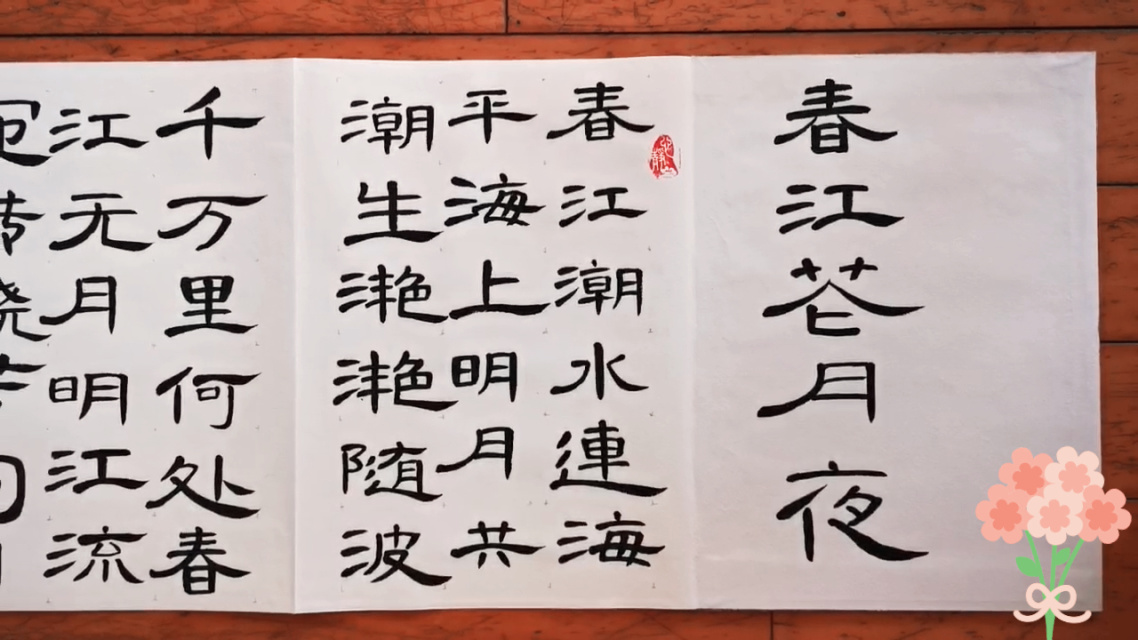 春江花月夜
春江潮水連海
平海上明月共
潮生滟滟随波
千万里何处春
江无月明江流